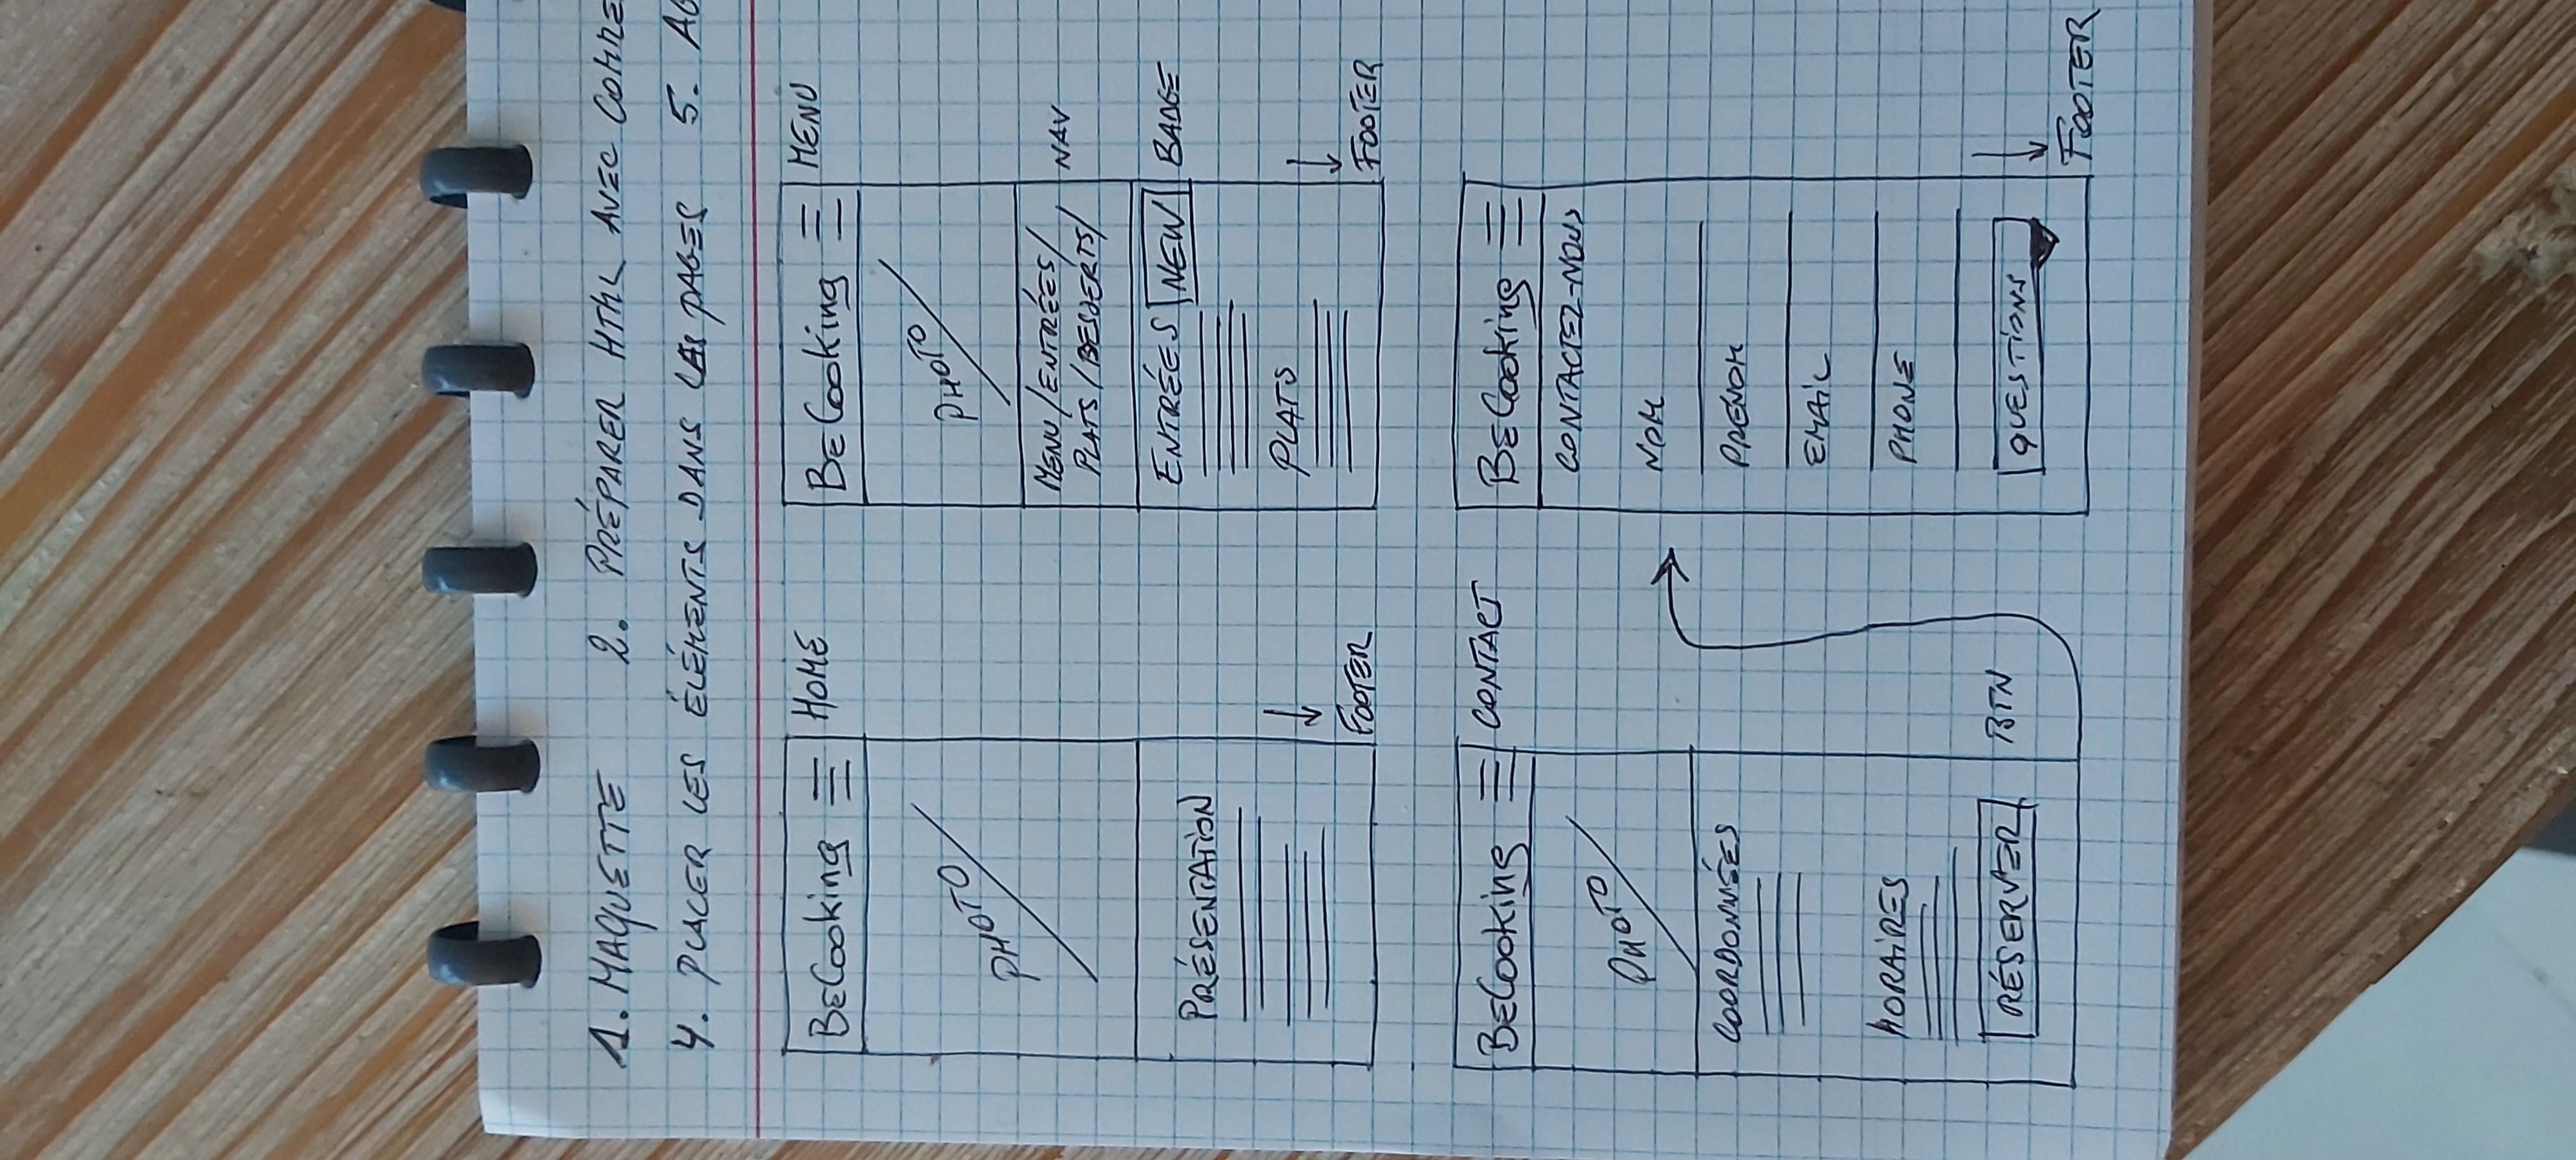 1. MAQUETTE 2. PRÉPARER HTML AVEC
4. PLACER LES ÉLÉMENTS DANS LES PAGES 5.
HOME
BECooking
PHOTO
PRÉSENTATION
FOOTER
MENU
BECooking
PHOTO
NAV
MENU/ENTRÉES/
PLATS/DESSERTS/
BADGE
ENTRÉES NEW
PLATS
FOOTER
CONTACT
BECooking
PHOTO
COORDONNÉES
HORAIRES
RÉSERVER
BTN
BECooking
CONTACTEZ-NOUS
NOM
PRENOM
EMAIL
PHONE
QUESTIONS
FOOTER